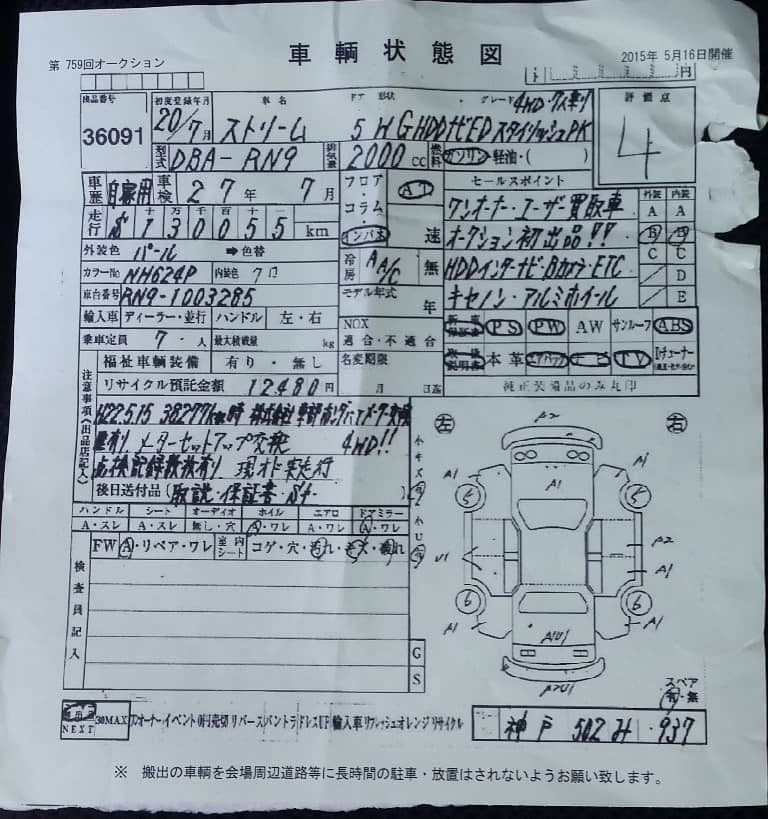 車輌状態図
第 759回オークション
2015年 5月16日開催
円
出品番号 36091
初度登録年月 20/7月
車名 ストリーム
ドア 形状 5 W
グレード 4WD・ワス乗り
G HDDナビED スタイリッシュPK
評価点 4
型式 DBA-RN9
排気量 2000cc
燃料 ガソリン・軽油・( )
車歴 自家用 車検 27年 7月
フロア・コラム・インパネ AT 速
セールスポイント
外装 内装
ワンオーナー・ユーザー買取車 A A
走行 $ 130055 km
十 万 千 百 十 一
オークション初出品!! B B
外装色 パール ➡色替
冷房 A A/C 無
HDDインターナビ・Bカメラ・ETC C C
カラーNo NH624P 内装色
D
車台番号 RN9-1003285
モデル年式 年
キセノン・アルミホイール E
輸入車 ディーラー・並行 ハンドル 左・右
NOX 適合・不適合
新車保証書 PS PW AW サンルーフ ABS
乗車定員 7人 最大積載量 kg
名変期限 月 日迄
取扱説明書 本革 エアバッグ ナビ TV
福祉車輌装備 有り・無し
純正装備品のみ丸印
リサイクル預託金額 12480円
注意事項(出品店記入)
H22.5.15 38277km時 株式会社
メーターセットアップ交換 4WD!!
点検記録簿数枚有り 現オド実走行
後日送付品(取説・保証書・
左 右
小キズ有
小U有
ハンドル シート オーディオ ホイル エアロ ドアミラー
A・スレ A・スレ 無し・穴 A・ワレ A・ワレ A・ワレ
FW A・リペア・ワレ 室内シート コゲ・穴・汚れ・キズ・破れ
検査員記入
G
S
A2
A1
A1 A1
5 5
U1
A2
A1
6 6
A1 A1
AU1
A2U1
スペア
有・無
NEXT 30MAX ワンオーナー イベント 売切 リバース バントラ ドレスUP 輸入車 リフレッシュ オレンジ リサイクル
神戸 502 み 937
※ 搬出の車輌を会場周辺道路等に長時間の駐車・放置はされないようお願い致します。